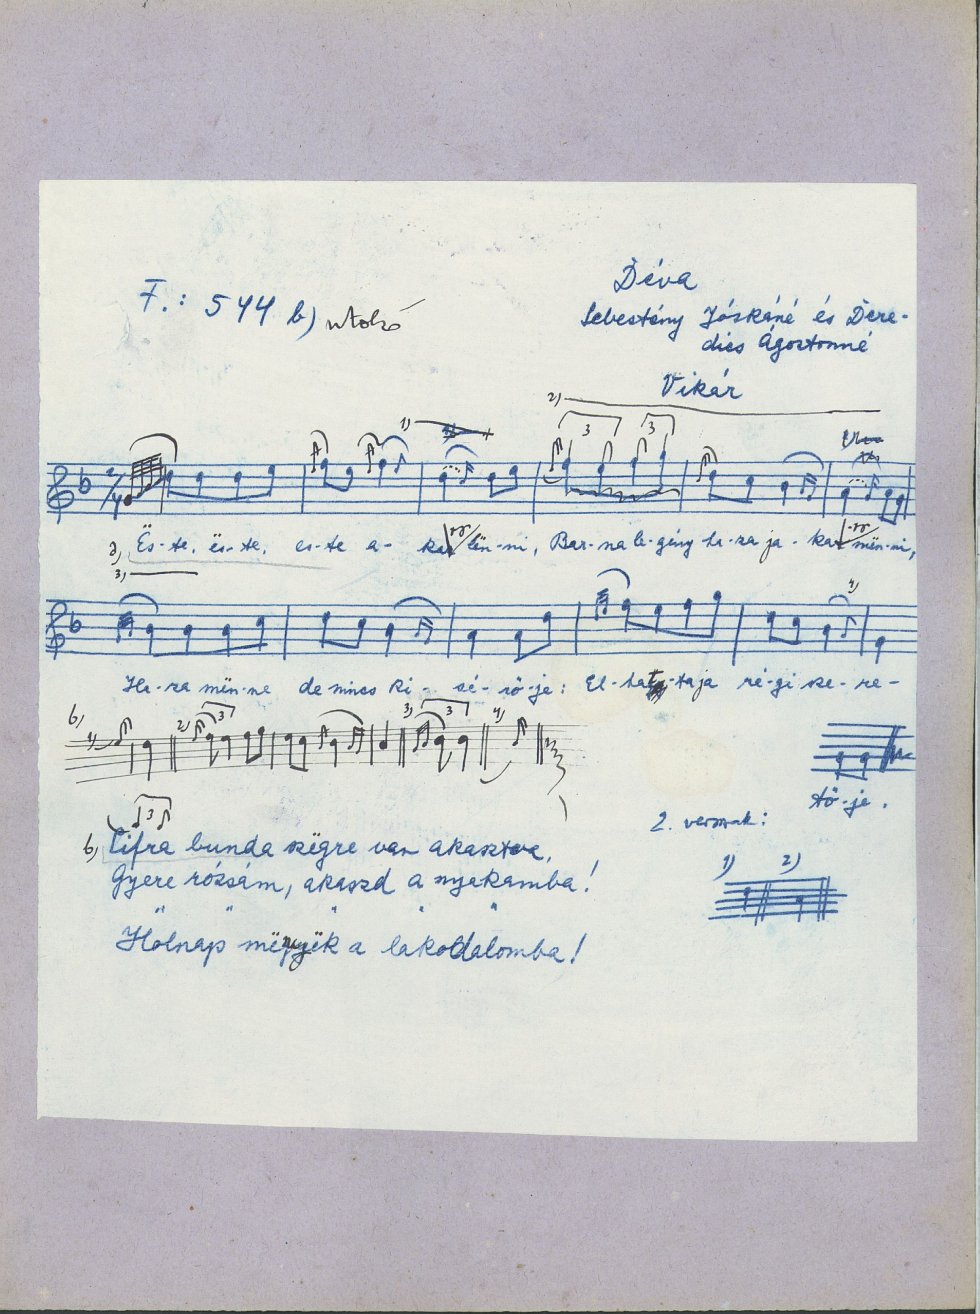 F.: 544 b) utolsó
Déva
Sebestény Jóskáné és Dere-
dics Ágostonné
Vikár
1) 2)
3 3
a) Ës-te, ës-te, es-te a- kar lën-ni, Bar-na le-gény ha-za ja- kar mën-ni,
3)
4)
Ha-za mën-ne de nincs ki- sé-rö-je: El-hat-taja ré-gi sze-re-
b) 1) 2) 3 3) 3 4)
tö-je.
3
b) Cifra bunda szëgre van akasztva,
Gyere rózsám, akaszd a nyakamba!
" " " " "
Hólnap mënyëk a lakodalomba!
2. versnak:
1) 2)